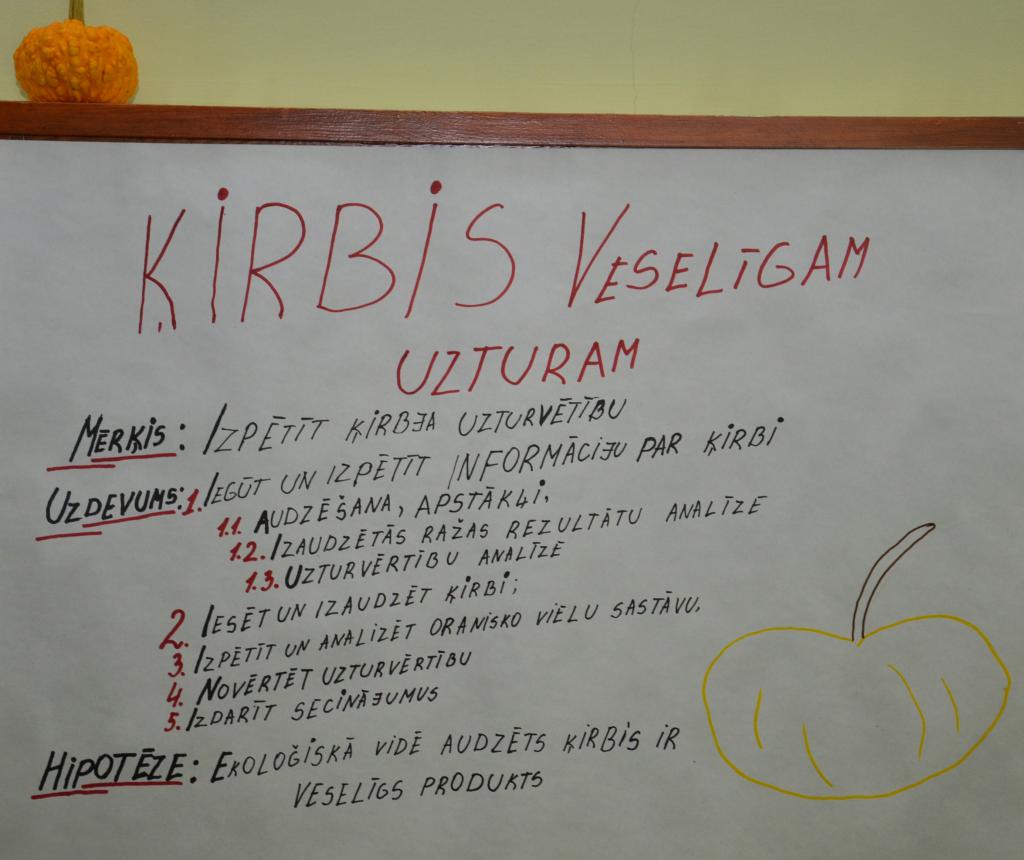 ĶIRBIS VESELĪGAM
UZTURAM
MĒRĶIS: IZPĒTĪT ĶIRBJA UZTURVĒTĪBU
UZDEVUMS: 1. IEGŪT UN IZPĒTĪT INFORMĀCIJU PAR ĶIRBI
1.1. AUDZĒŠANA, APSTĀKĻI,
1.2. IZAUDZĒTĀS RAŽAS REZULTĀTU ANALĪZE
1.3. UZTURVĒRTĪBU ANALĪZE
2. IESĒT UN IZAUDZĒT ĶIRBI;
3. IZPĒTĪT UN ANALIZĒT ORANISKO VIELU SASTĀVU.
4. NOVĒRTĒT UZTURVĒRTĪBU
5. IZDARĪT SECINĀJUMUS
HIPOTĒZE: EKOLOĢISKĀ VIDĒ AUDZĒTS ĶIRBIS IR
VESELĪGS PRODUKTS